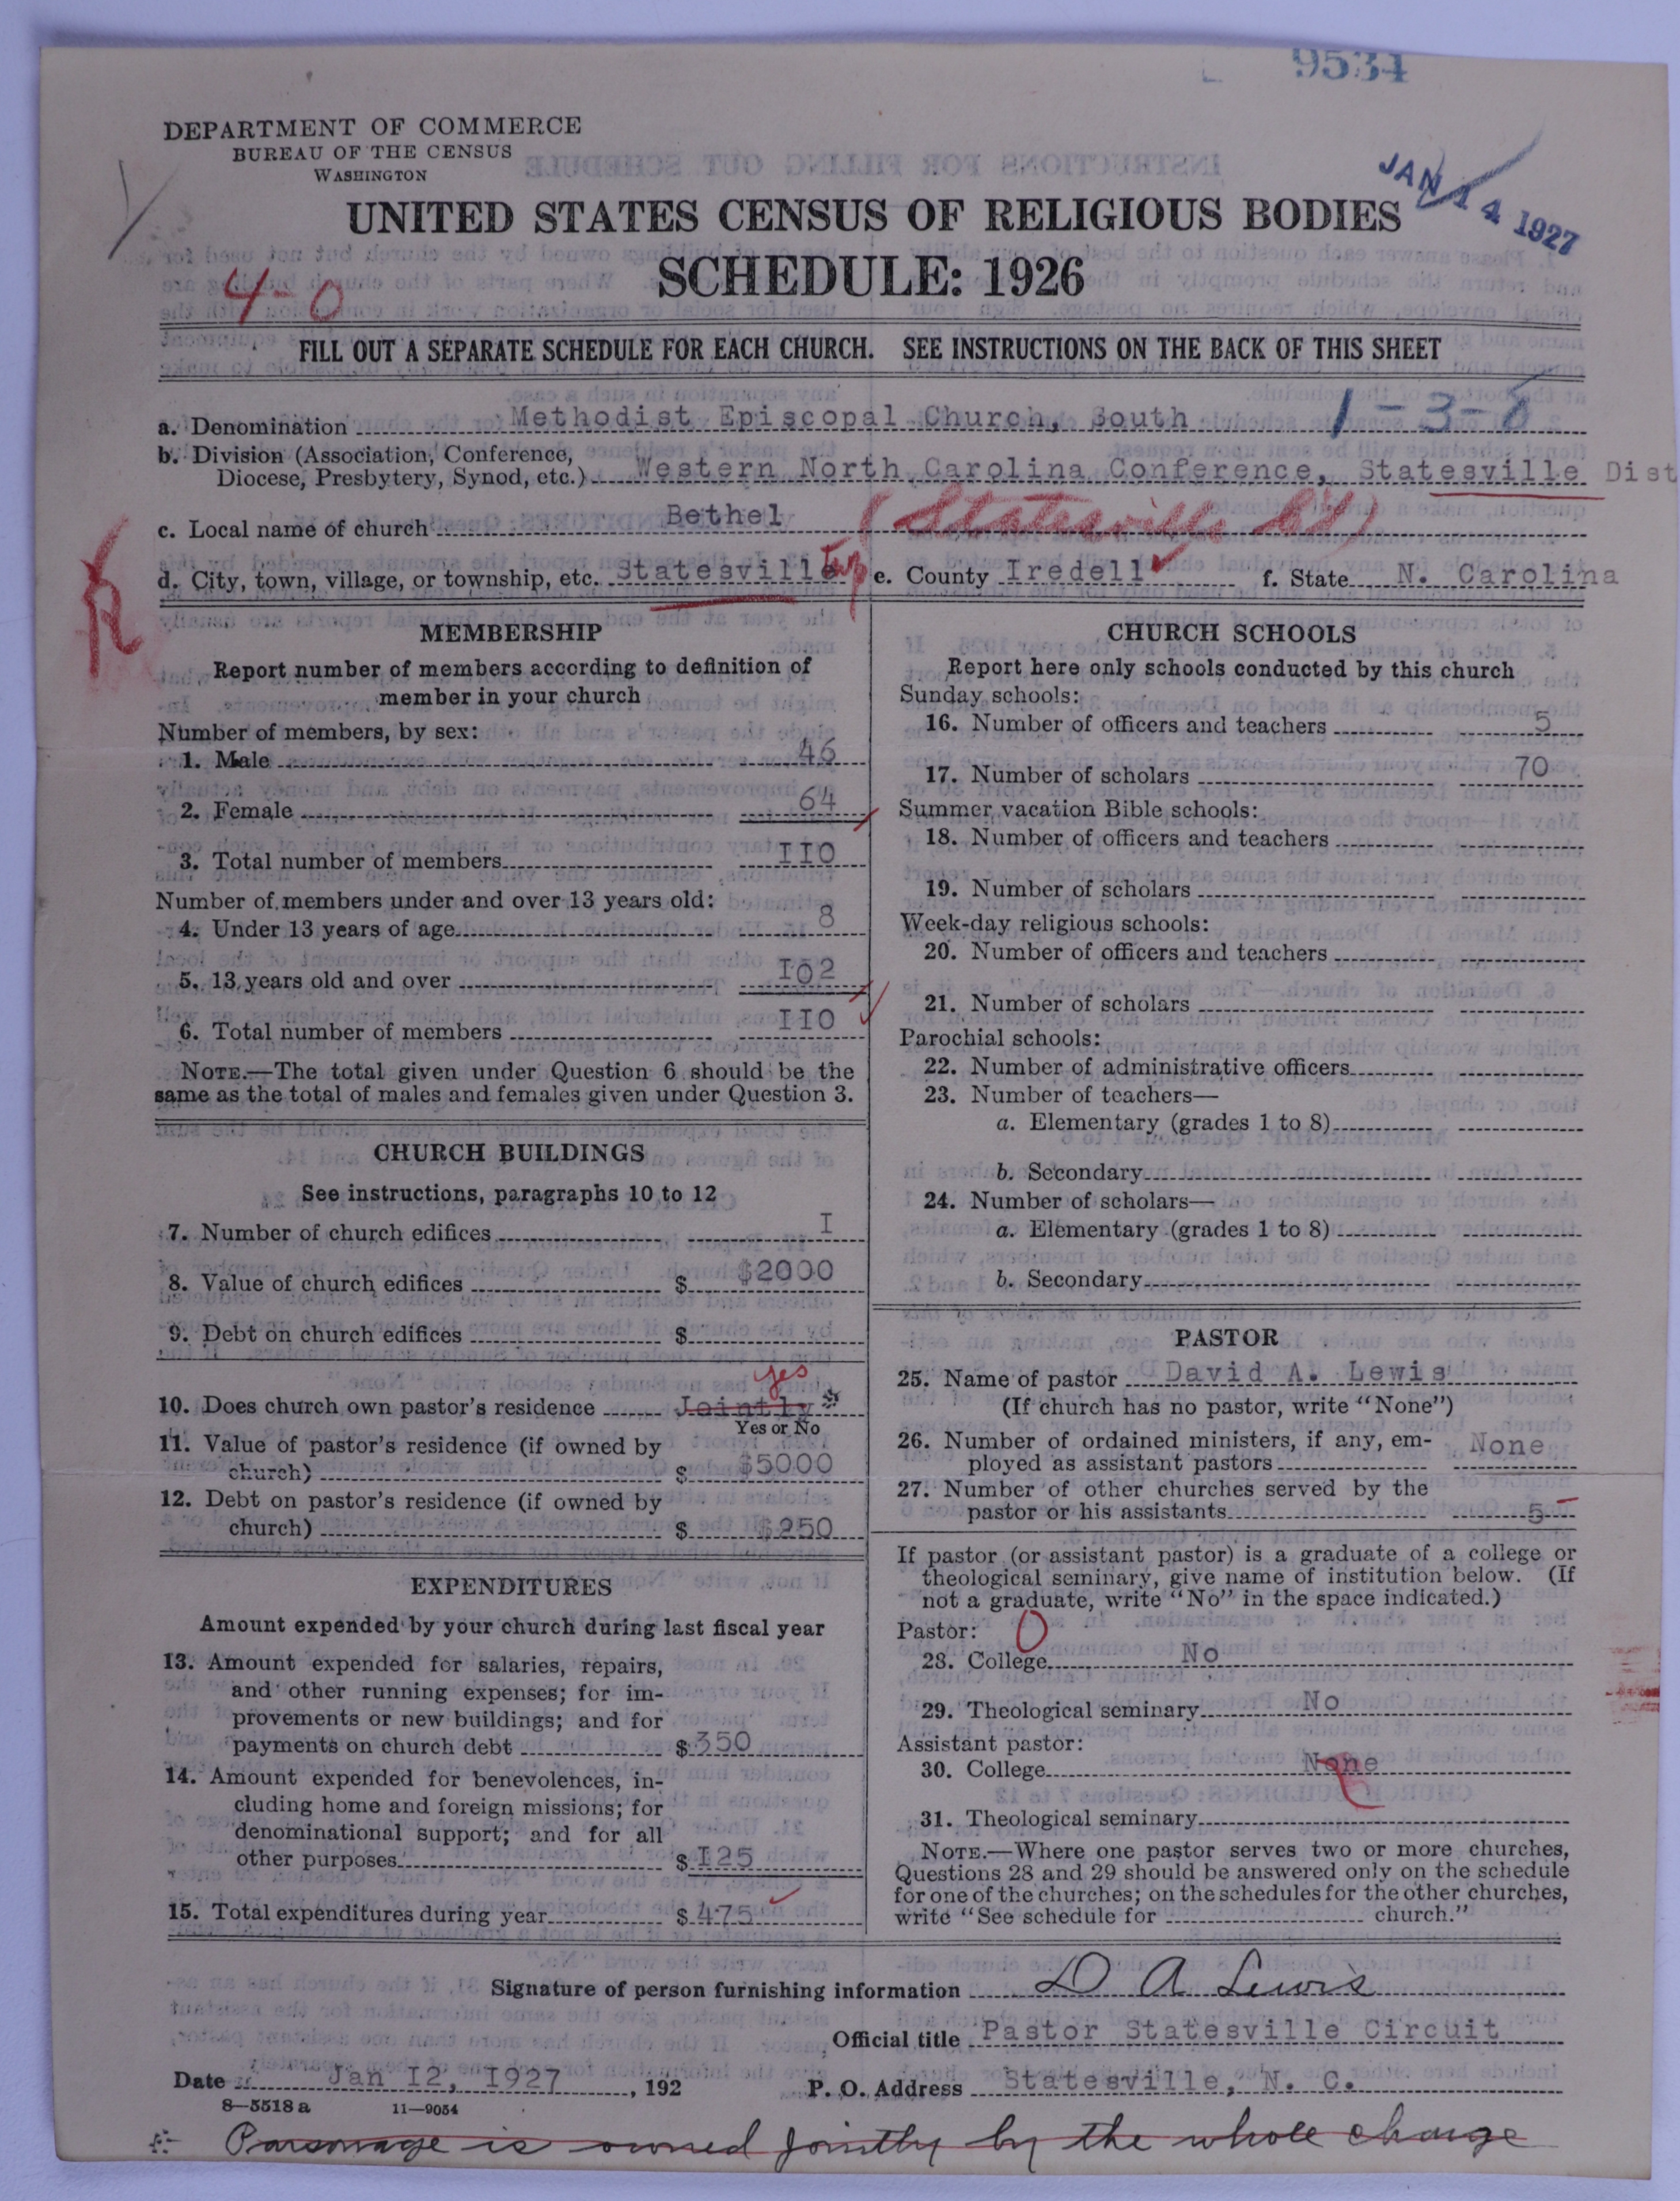 9534
DEPARTMENT OF COMMERCE
BUREAU OF THE CENSUS
WASHINGTON
JAN 14 1927
UNITED STATES CENSUS OF RELIGIOUS BODIES
SCHEDULE: 1926
4-0
FILL OUT A SEPARATE SCHEDULE FOR EACH CHURCH. SEE INSTRUCTIONS ON THE BACK OF THIS SHEET
a. Denomination Methodist Episcopal Church, South 1-3-0
b. Division (Association, Conference,
Diocese, Presbytery, Synod, etc.) Western North Carolina Conference, Statesville Dist
c. Local name of church Bethel (Statesville Ct)
d. City, town, village, or township, etc. Statesville Twp e. County Iredell f. State N. Carolina
MEMBERSHIP
Report number of members according to definition of
member in your church
Number of members, by sex:
1. Male 46
2. Female 64
3. Total number of members IIO
Number of members under and over 13 years old:
4. Under 13 years of age 8
5. 13 years old and over IO2
6. Total number of members IIO
NOTE.—The total given under Question 6 should be the
same as the total of males and females given under Question 3.
CHURCH BUILDINGS
See instructions, paragraphs 10 to 12
7. Number of church edifices I
8. Value of church edifices $ $2000
9. Debt on church edifices $
yes
10. Does church own pastor's residence Jointly *
Yes or No
11. Value of pastor's residence (if owned by
church) $ $5000
12. Debt on pastor's residence (if owned by
church) $ $250
EXPENDITURES
Amount expended by your church during last fiscal year
13. Amount expended for salaries, repairs,
and other running expenses; for im-
provements or new buildings; and for
payments on church debt $ 350
14. Amount expended for benevolences, in-
cluding home and foreign missions; for
denominational support; and for all
other purposes $ I25
15. Total expenditures during year $ 475
CHURCH SCHOOLS
Report here only schools conducted by this church
Sunday schools:
16. Number of officers and teachers 5
17. Number of scholars 70
Summer vacation Bible schools:
18. Number of officers and teachers
19. Number of scholars
Week-day religious schools:
20. Number of officers and teachers
21. Number of scholars
Parochial schools:
22. Number of administrative officers
23. Number of teachers—
a. Elementary (grades 1 to 8)
b. Secondary
24. Number of scholars—
a. Elementary (grades 1 to 8)
b. Secondary
PASTOR
25. Name of pastor David A. Lewis
(If church has no pastor, write "None")
26. Number of ordained ministers, if any, em-
ployed as assistant pastors None
27. Number of other churches served by the
pastor or his assistants 5
If pastor (or assistant pastor) is a graduate of a college or
theological seminary, give name of institution below. (If
not a graduate, write "No" in the space indicated.)
Pastor: 0
28. College No
29. Theological seminary No
Assistant pastor:
30. College None
31. Theological seminary
NOTE.—Where one pastor serves two or more churches,
Questions 28 and 29 should be answered only on the schedule
for one of the churches; on the schedules for the other churches,
write "See schedule for church."
Signature of person furnishing information D A Lewis
Official title Pastor Statesville Circuit
Date Jan I2, I927, 192 P. O. Address Statesville, N. C.
8—5518 a 11—9054
* Parsonage is owned jointly by the whole charge